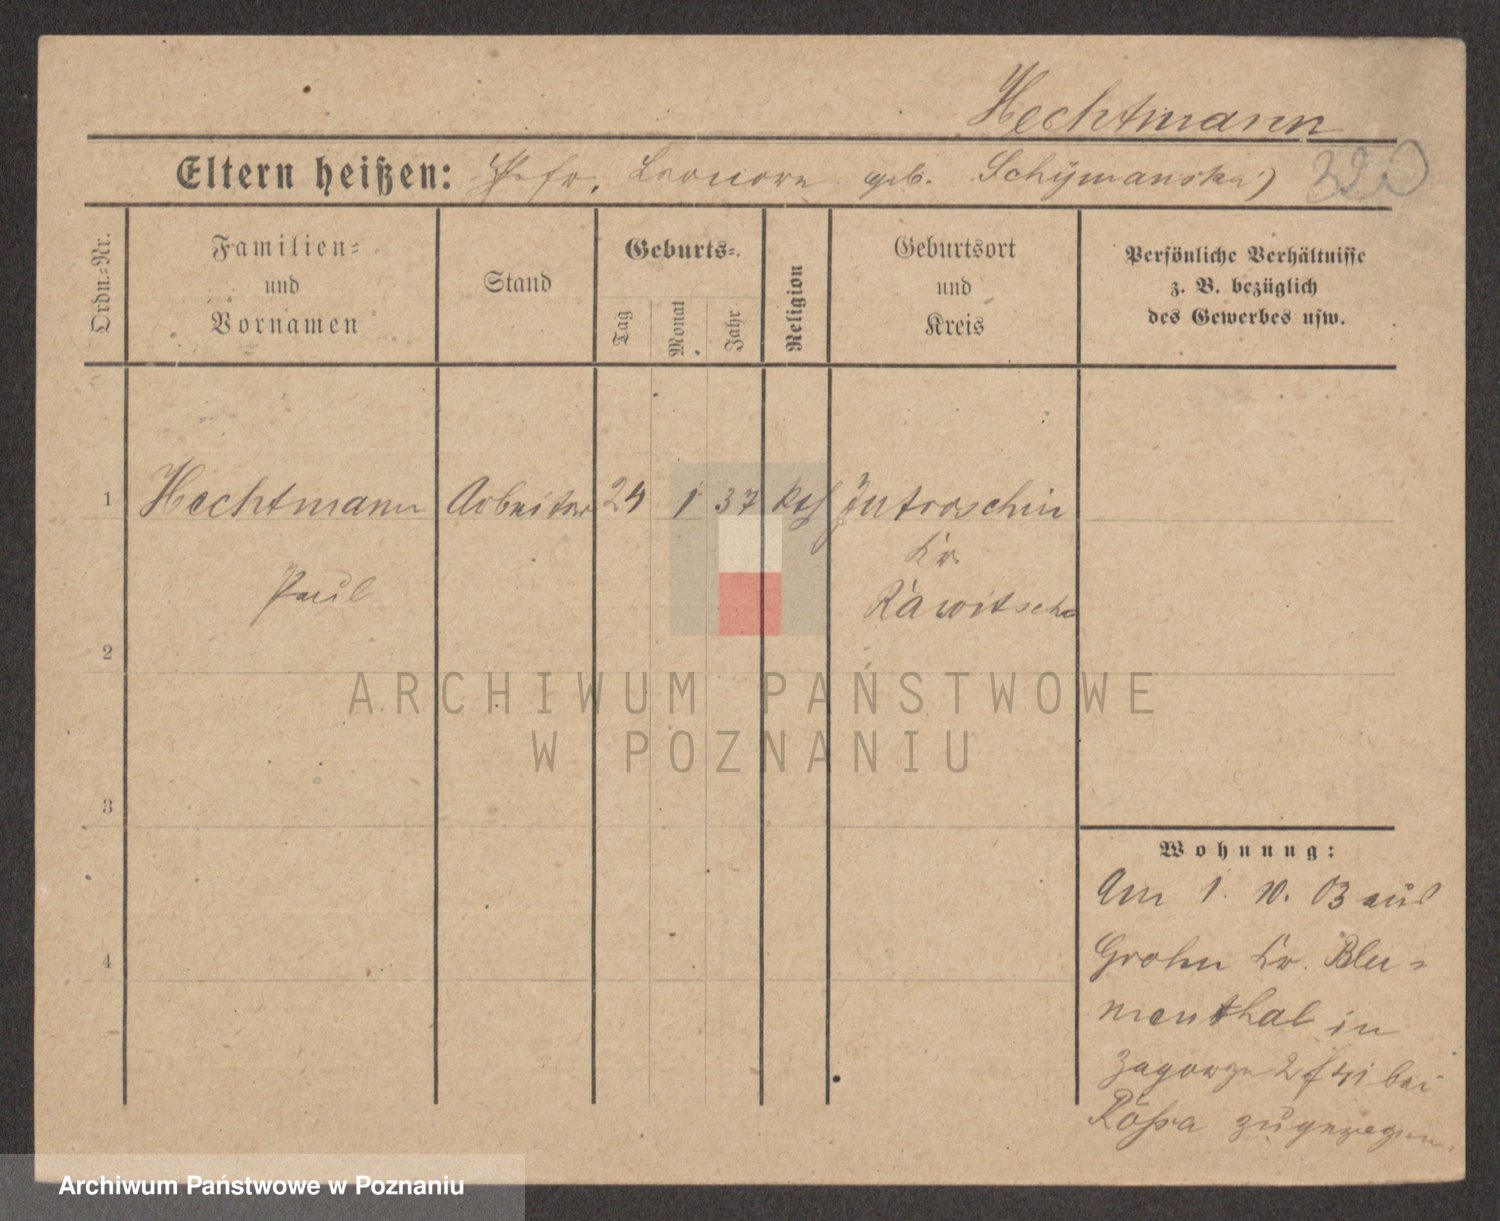 Hechtmann
Eltern heißen: geb. Schymanska)
320
Ordn.=Nr.
Familien=
und
Vornamen
Stand
Geburts=
Tag
Monat
Jahr
Religion
Geburtsort
und
Kreis
Persönliche Verhältnisse
z. B. bezüglich
des Gewerbes usw.
1 Hechtmann Arbeiter 24 1 37 kth Jutroschin
Kr.
Paul Rawitsch
2
ARCHIWUM PAŃSTWOWE
W POZNANIU
3
Wohnung:
Am 1. 10. 03 aus
Grohn Kr. Blu=
4
menthal in
Zagorze bei
zugezogen
Archiwum Państwowe w Poznaniu